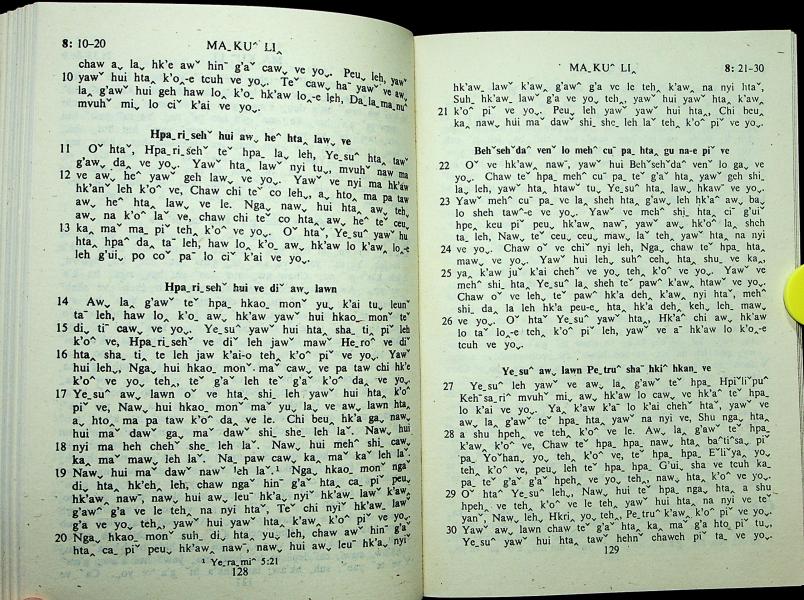 8: 10–20 MA_ KUˆ LI‸
chaw a˯ la˯ hk'e awˇ hin¯ g'aˇ caw˯ ve yo˯. Peu˯ leh, yawˇ
10 yawˇ hui hta˰ k'o˰-e tcuh ve yo˯. Teˇ caw˯ haˉ yawˇ ve aw˰
la˰ g'awˇ hui geh haw lo˰ k'o˰ hk'aw lo˰-e leh, Da˯la˰ma˰nuˆ
mvuhˇ mi˯ lo ciˇ k'ai ve yo˯.
Hpa_ri_sehˇ hui aw˰ heˆ hta˰ law˯ ve
11 Oˇ htaˇ, Hpa_ri_sehˇ teˇ hpa_ la˯ leh, Ye_suˆ hta˰ tawˇ
g'aw˯ da˰ ve yo˯. Yawˇ hta˰ lawˇ nyi tu˯, mvuhˇ naw ma
12 ve aw˰ heˆ yawˇ geh law˯ ve yo˯. Yawˇ ve nyi ma hk'aw
hk'anˇ leh k'oˆ ve, Chaw chi teˇ co leh˯, a˰ hto˰ ma pa taw
aw˰ heˆ hta˰ law˯ ve le. Nga˰ naw˯ hui hta˰ aw˰ teh˰
aw˰ na k'oˆ laˇ ve, chaw chi teˇ co hta˰ aw˰ heˆ teˇ ceu˰
13 ka˰ maˇ ma˰ piˇ teh˰ k'oˆ ve yo˯. Oˇ htaˇ, Ye_suˆ yawˇ hu
hta˰ hpaˆ da˰ taˉ leh, haw lo˰ k'o˰ aw˰ hk'aw lo k'aw˰ lo˰-e
leh g'ui˯ po coˇ paˉ lo ciˇ k'ai ve yo˯.
Hpa_ri_sehˇ hui ve diˇ aw˰ lawn
14 Aw˰ la˰ g'awˇ teˇ hpa_ hkao_ monˇ yu˰ k'ai tu˰ leunˇ
taˉ leh, haw lo˰ k'o˰ aw˰ hk'aw yawˇ hui hkao_ monˇ teˇ
15 di˯ tiˉ caw˯ ve yo˯. Ye_suˆ yawˇ hui hta˰ sha_ ti˰ piˇ leh
k'oˆ ve, Hpa_ri_sehˇ ve diˇ leh jawˇ mawˇ He_roˆ ve diˇ
16 hta˰ sha_ ti˰ te leh jaw k'ai-o teh˰ k'oˆ piˇ ve yo˯. Yawˇ
hui leh˯, Nga˰ hui hkao_ monˇ maˇ caw˯ ve pa taw chi hk'e
k'oˆ ve yo˯ teh˰, teˇ g'aˇ leh teˇ g'aˇ k'oˆ da˰ ve yo˯.
17 Ye_suˆ aw˰ lawn oˇ ve hta˰ shi_ leh yawˇ hui hta˰ k'oˆ
piˇ ve, Naw˯ hui hkao_ monˇ maˇ yu˰ la˯ ve aw˰ lawn hta˰
a˰ hto˰ ma pa taw k'oˆ da˰ ve le. Chi beu˰ hk'a ga˰ naw˯
hui maˇ dawˇ ga˰ maˇ dawˇ shi_ she_ leh laˇ. Naw˯ hui
18 nyi ma heh chehˇ she_ leh laˇ. Naw˯ hui mehˆ shi_ caw˯
ka˰ maˇ maw˯ leh laˇ. Na_ paw caw˯ ka˰ maˇ ka˰ leh laˇ.
19 Naw˯ hui maˇ dawˇ nawˇ ¹eh laˇ.¹ Nga˰ hkao_ monˇ nga˰
di˯ hta˰ hk'eh˰ leh, chaw nga˰ hin¯ g'aˇ hta˰ ca˰ piˇ peu˰
hk'aw˰ nawˇ, naw˯ hui aw˰ leuˉ hk'a˰ nyiˇ hk'aw˰ lawˇ k'aw˰
g'awˆ g'a ve le teh˰ na nyi htaˇ, Teˇ chi nyiˇ hk'aw˰ lawˇ
g'a ve yo˯ teh˰, yawˇ hui yawˇ hta˰ k'aw˰ k'oˆ piˇ ve yo˯.
20 Nga˰ hkao_ monˇ suh_ di˯ hta˰ yu˰ leh, chaw awˇ hin¯ g'aˇ
hta˰ ca˰ piˇ peu˰ hk'aw˰ nawˇ, naw˯ hui aw˰ leuˉ hk'a˰ nyiˇ
¹ Ye_ra_miˆ 5:21
128
MA_ KUˆ LI‸ 8: 21–30
hk'aw˰ lawˇ k'aw˰ g'awˆ g'a ve le teh˰ k'aw˰ na nyi htaˇ,
Suh_ hk'aw˰ lawˇ g'a ve yo˯ teh˰, yawˇ hui yawˇ hta˰ k'aw˰
21 k'oˆ piˇ ve yo˯. Peu˯ leh yawˇ yawˇ hui hta˰, Chi beu˰
ka˰ naw˯ hui maˇ daw shi_ she_ leh laˇ teh˰ k'oˆ piˇ ve yo˯.
Behˇsehˇdaˆ venˇ lo mehˆ cuˉ pa_ hta˰ gu na-e piˇ ve
22 Oˇ ve hk'aw˰ nawˇ, yawˇ hui Behˇsehˇdaˆ venˇ lo ga˯ ve
yo˯. Chaw teˇ hpa_ mehˆ cuˉ pa_ teˇ g'aˇ hta˰ yawˇ geh shi_
la˯ leh, yawˇ hta˰ htawˇ tu˯ Ye_suˆ hta˰ law˯ hkawˇ ve yo˯.
23 Yawˇ mehˆ cuˉ pa_ ve la˰ sheh hta˰ g'aw˰ leh hk'aˆ aw˰ ba˰
lo sheh tawˆ-e ve yo˯. Yawˇ ve mehˆ shi_ hta˰ ciˉ g'uiˇ
hpe˰ keu piˇ peu˰ hk'aw˰ nawˇ, yawˇ aw˰ hk'oˆ la˰ shch
ta˰ leh, Nawˇ teˇ ceu˰ ceu˰ maw˯ laˇ teh˰ yawˇ hta˰ na nyi
24 ve yo˯. Chaw oˇ ve chiˇ nyi leh, Nga˰ chaw teˇ hpa_ hta˰
maw˯ ve yo˯. Yawˇ hui leh˯ suhˆ ceh˰ hta˰ shu˰ ve ka˰,
25 ya˰ k'aw juˇ k'ai chehˇ ve yo˯ teh˰ k'oˆ ve yo˯. Yawˇ ve
mehˆ shi_ hta˰ Ye_suˆ la˰ sheh teˇ pawˆ k'aw˰ htawˇ ve yo˯.
Chaw oˇ ve leh˯ teˇ pawˆ hk'a deh˰ k'aw˰ nyi htaˇ, mehˆ
shi_ da˰ la leh hk'a peu-e˰ hta˰ hk'a deh˰ keh˰ leh maw˯
26 ve yo˯. Oˇ htaˇ Ye_suˆ yawˇ hta˰, Hk'aˆ chi aw˰ hk'aw
lo taˇ lo˰-e teh˰ k'oˆ piˇ leh, yawˇ ve aˉ hk'aw lo k'o˰-e
tcuh ve yo˯.
Ye_suˆ aw˰ lawn Pe_truˆ shaˉ hkiˆ hkan˰ ve
27 Ye_suˆ leh yawˇ ve aw˰ la˰ g'awˇ teˇ hpa_ Hpiˇliˇpuˆ
Kehˉsa_riˆ mvuhˇ mi˯ aw˰ hk'aw lo caw˯ ve hk'aˆ teˇ hpa_
lo k'ai ve yo˯. Ya˰ k'aw k'aˉ lo k'ai chehˇ htaˇ, yawˇ ve
aw˰ la˰ g'awˇ teˇ hpa_ hta˰ yawˇ na nyi ve, Shu_ nga˰ hta˰
28 a shu hpeh˰ ve teh˰ k'oˆ ve le. Aw˰ la˰ g'awˇ te hpa_
k'aw˰ k'oˆ ve, Chaw teˇ hpa_ hpa_ nawˇ hta˰ baˆtiˆsa˰ piˇ
pa_ Yoˆhan˰ yo˯ teh˰ k'oˆ ve, teˇ hpa_ hpa_ Eˆliˇya˰ yo˯
teh˰ k'oˆ ve, peu˯ leh teˇ hpa_ hpa_ G'ui˯ sha ve tcuh ka˰
pa_ teˇ g'aˇ g'aˇ hpeh˰ ve, yo˯ teh˰ nawˇ hta˰ k'oˆ ve yo˯.
29 Oˇ htaˆ Ye_suˆ leh˯, Naw˯ hui teˇ hpa_ nga˰ hta˰ a shu
hpeh˰ ve teh˰ k'oˆ ve le teh˰ yawˇ hui hta˰ na nyi ve teˇ
yanˇ, Nawˇ leh˯ Hkri˰ yo˯ teh˰ Pe_truˆ k'aw˰ k'oˆ piˇ ve yo˯.
30 Yawˇ aw˰ lawn chaw teˇ g'aˇ hta˰ ka˰ maˇ g'a hto˰ piˇ tu˯,
Ye_suˆ yawˇ hui hta˰ tawˇ hehnˇ chaweh piˇ ta˰ ve yo˯.
129